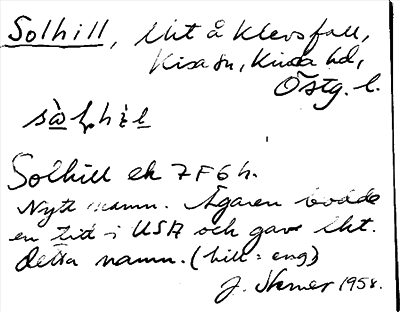 Solhill, lht å Klevsfall,
Kisa sn, Kinda hd,
Östg. l.
Solhill ek 7F6h.
Nytt namn. Ägaren bodde
en tid i USA och gav lht.
detta namn. (hill = eng)
J. 1958.